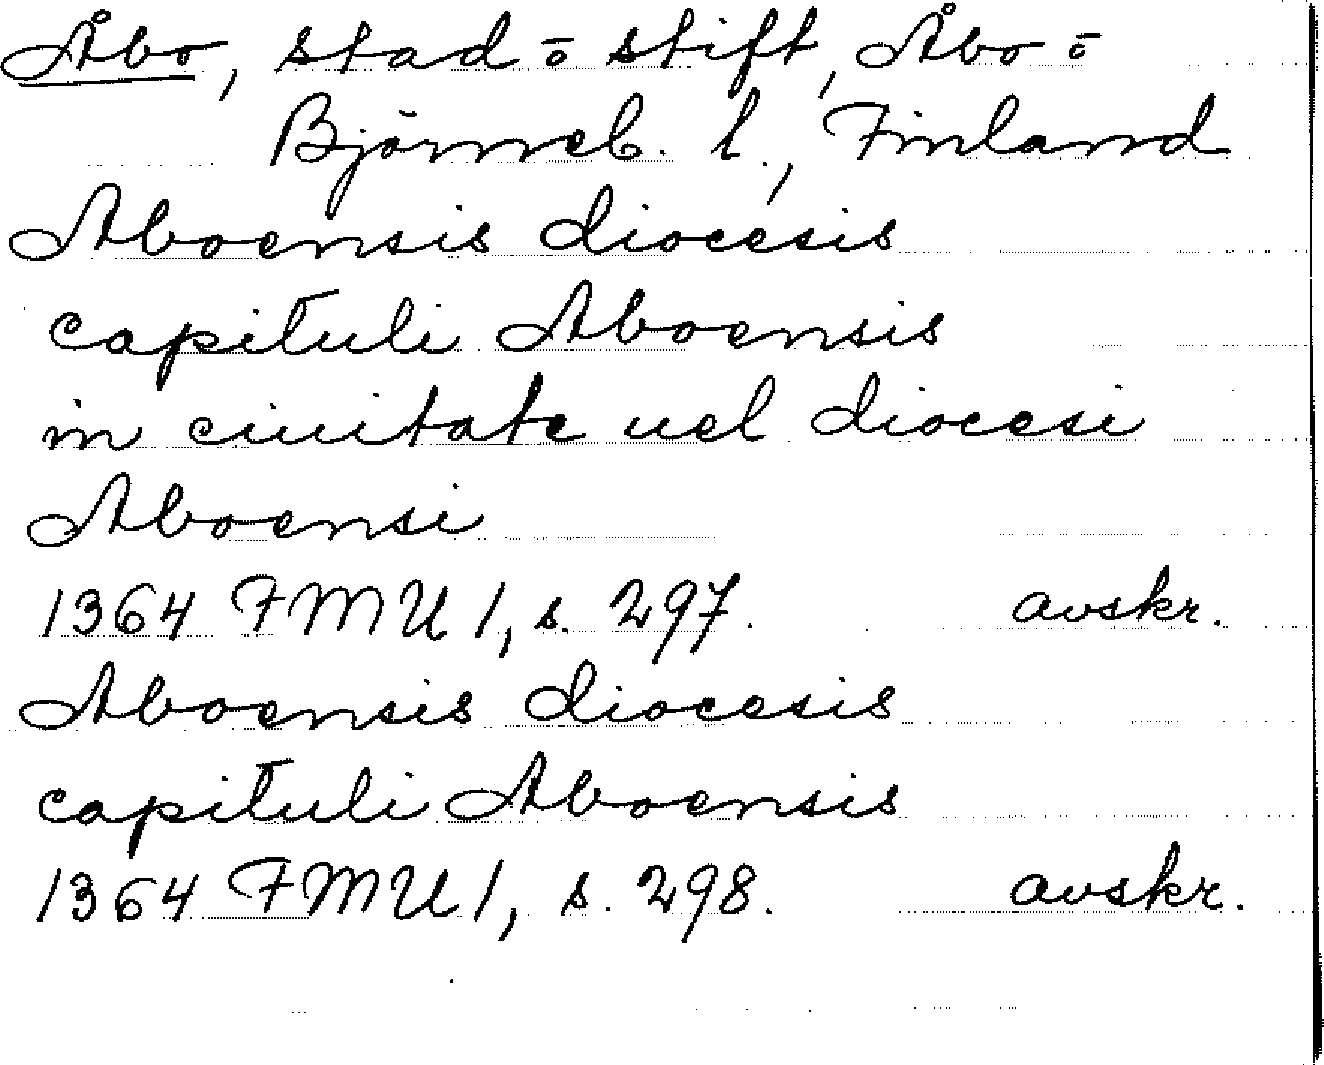 Åbo, stad ō stift, Åbo ō
Björneb. l., Finland
Aboensis diocesis
capituli Aboensis
in ciuitate uel diocesi
Aboensi
1364 FMU 1, s. 297. avskr.
Aboensis diocesis
capituli Aboensis
1364 FMU 1, s. 298. avskr.